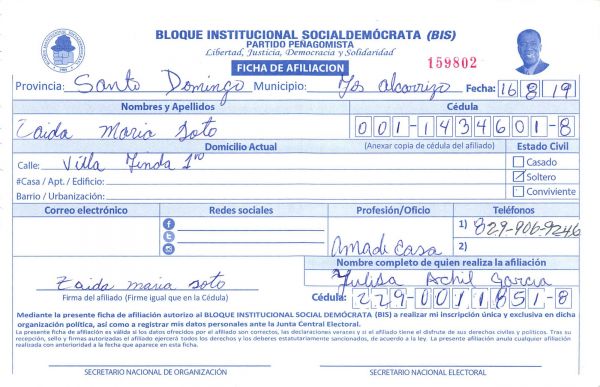 BLOQUE INSTITUCIONAL SOCIALDEMÓCRATA (BIS)
PARTIDO PEÑAGOMISTA
Libertad, Justicia, Democracia y Solidaridad
FICHA DE AFILIACION
159802
Provincia: Santo Domingo Municipio: Los alcarrizo Fecha: 16 8 19
Nombres y Apellidos Cédula
Zaida Maria Soto 001-1434601-8
Domicilio Actual (Anexar copia de cédula del afiliado) Estado Civil
Calle: Villa Linda 1ro Casado
#Casa / Apt. / Edificio: Soltero
Barrio / Urbanización: Conviviente
Correo electrónico Redes sociales Profesión/Oficio Teléfonos
1) 829-906-9246
Amade Casa 2)
Nombre completo de quien realiza la afiliación
Zaida maria soto Yulisa Achil Garcia
Firma del afiliado (Firme igual que en la Cédula) Cédula: 229-0011851-8
Mediante la presente ficha de afiliación autorizo al BLOQUE INSTITUCIONAL SOCIAL DEMÓCRATA (BIS) a realizar mi inscripción única y exclusiva en dicha
organización política, así como a registrar mis datos personales ante la Junta Central Electoral.
La presente ficha de afiliación es válida si los datos ofrecidos por el afiliado son correctos, las declaraciones veraces y si el afiliado tiene el disfrute de sus derechos civiles y políticos. Tras su
recepción, sello y firmas autorizadas el afiliado ejercerá todos los derechos y los deberes estatutariamente sancionados, de acuerdo a la ley. La presente afiliación anula cualquier afiliación
realizada con anterioridad a la fecha que aparece en esta ficha.
SECRETARIO NACIONAL DE ORGANIZACIÓN SECRETARIO NACIONAL ELECTORAL